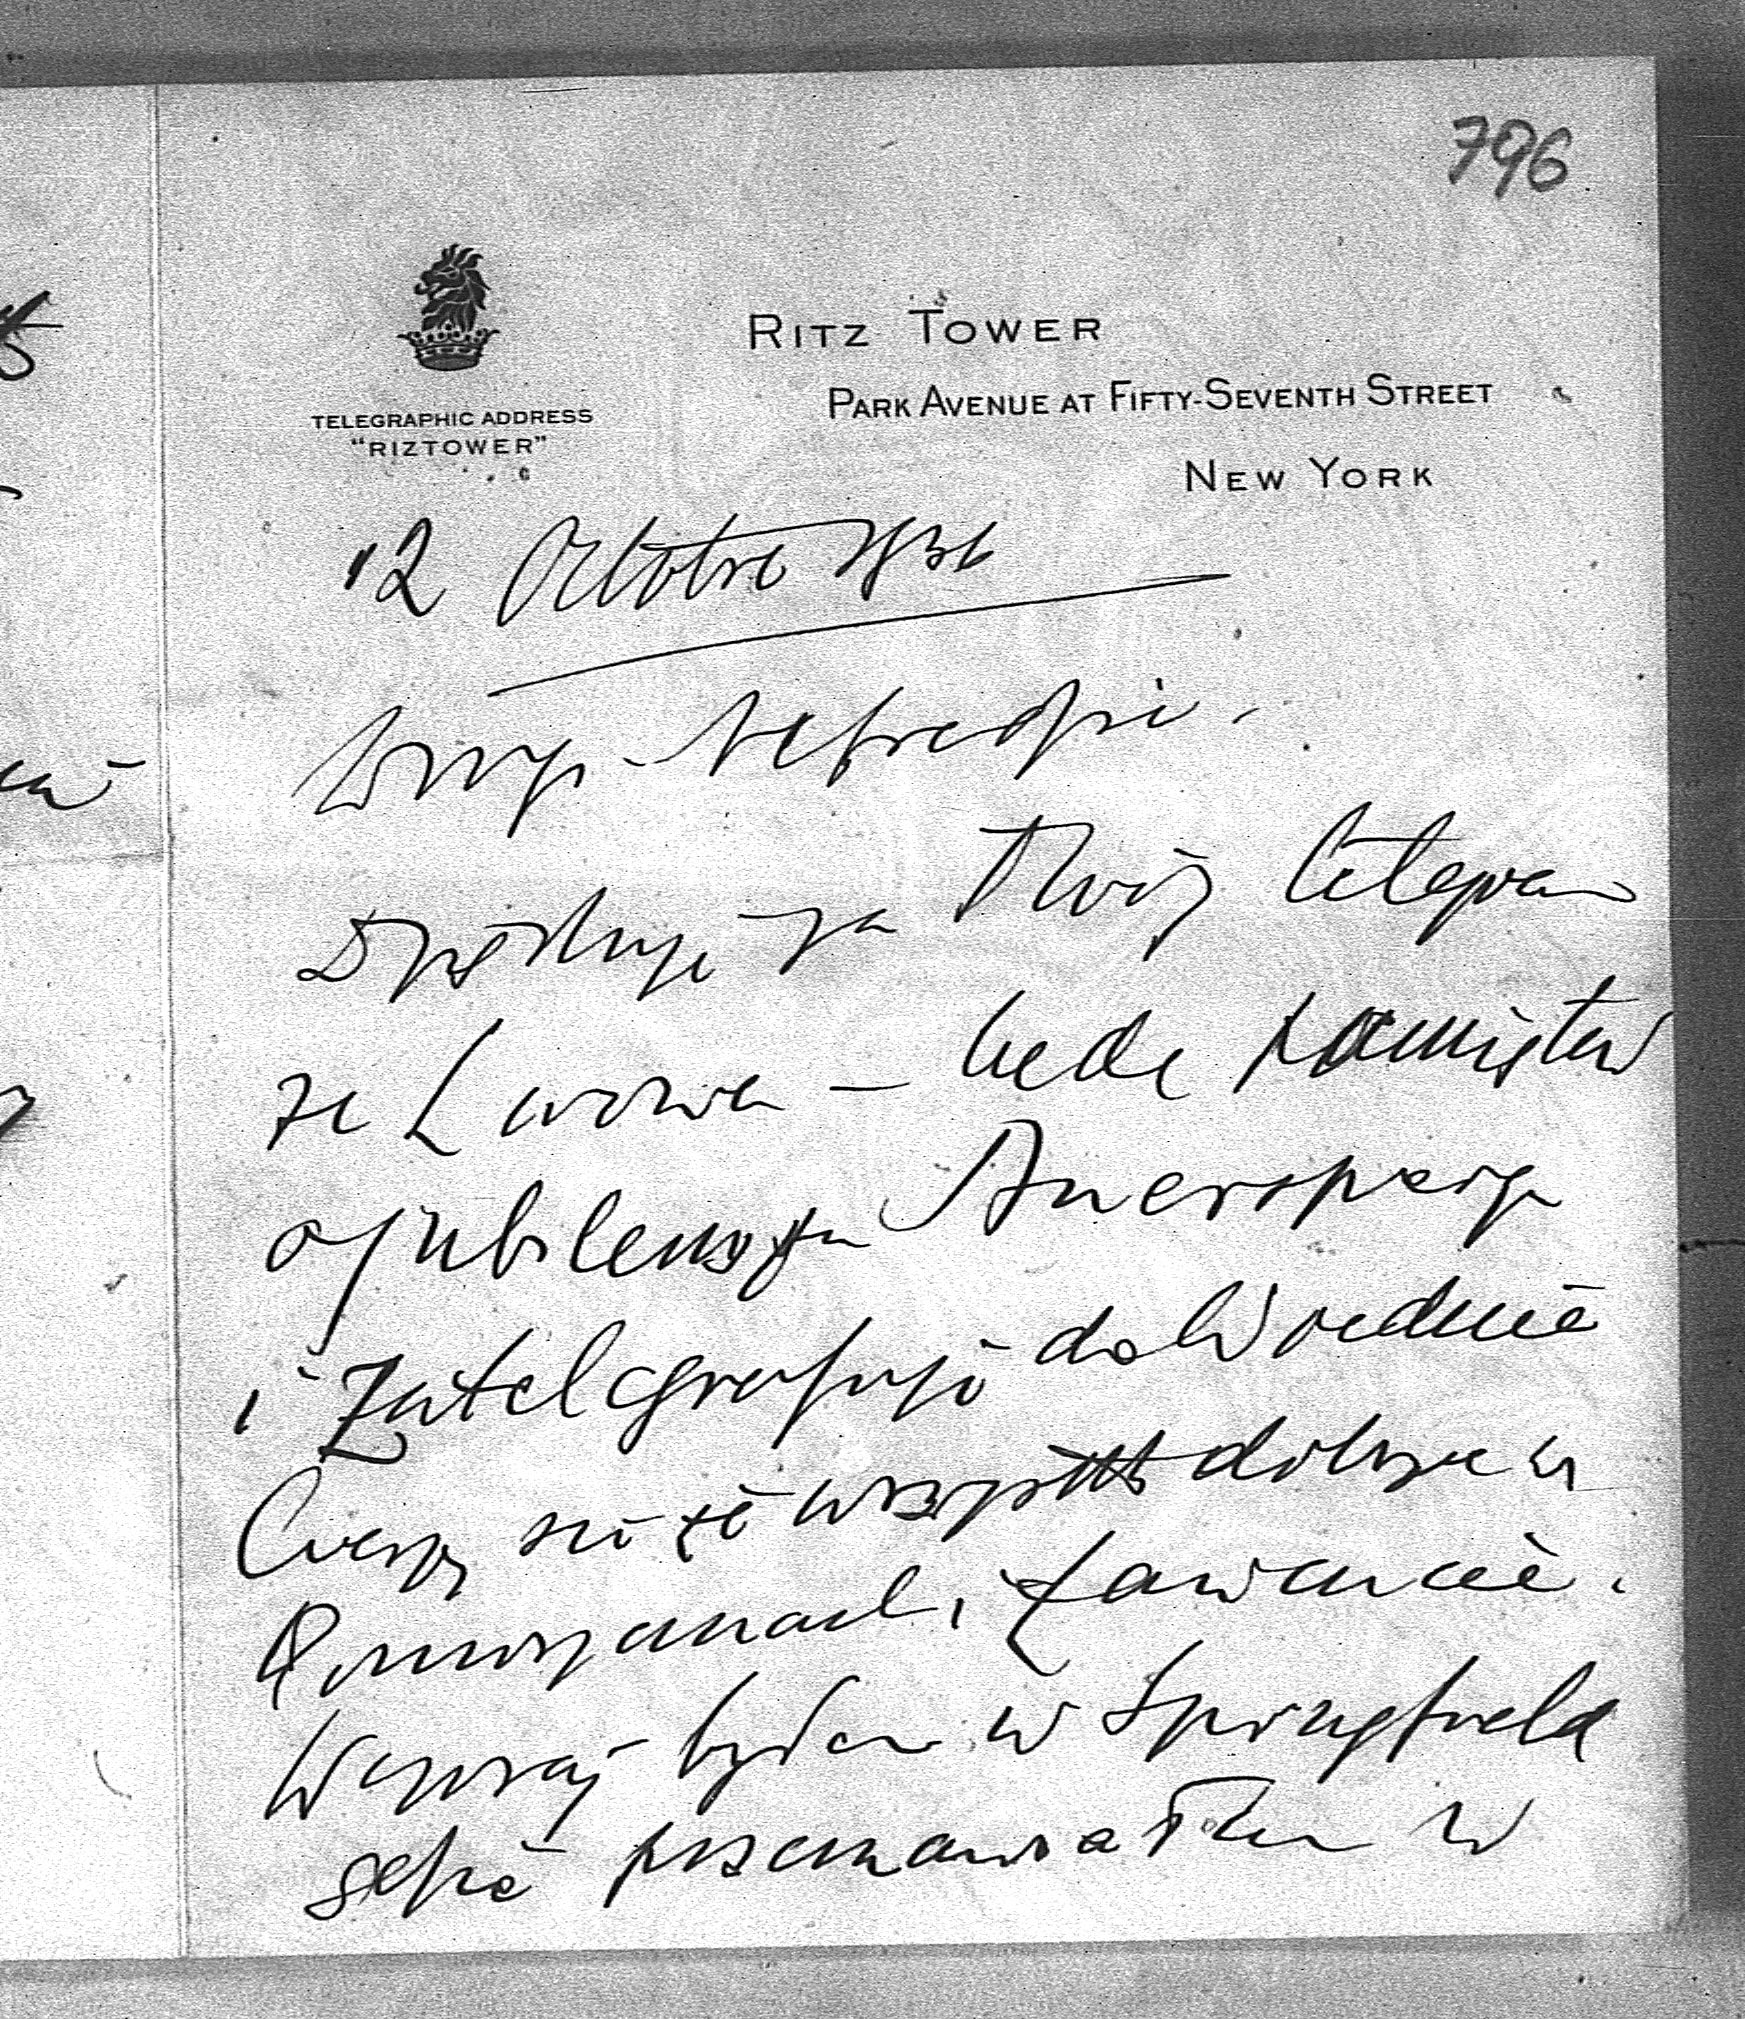 796
RITZ TOWER
PARK AVENUE AT FIFTY-SEVENTH STREET
NEW YORK
TELEGRAPHIC ADDRESS
"RIZTOWER"
12 Octobre 1936
Drogi Alfredzie.
Dziękuję za Twój telegram
ze Lwowa – będę pamiętał
o jubileuszu Auersperga
i zatelegrafuję do Wiednia
Cieszę się że wszystko dobrze w
i Łańcucie.
Wczoraj byłem w Springfield
gdzie przemawiałem w